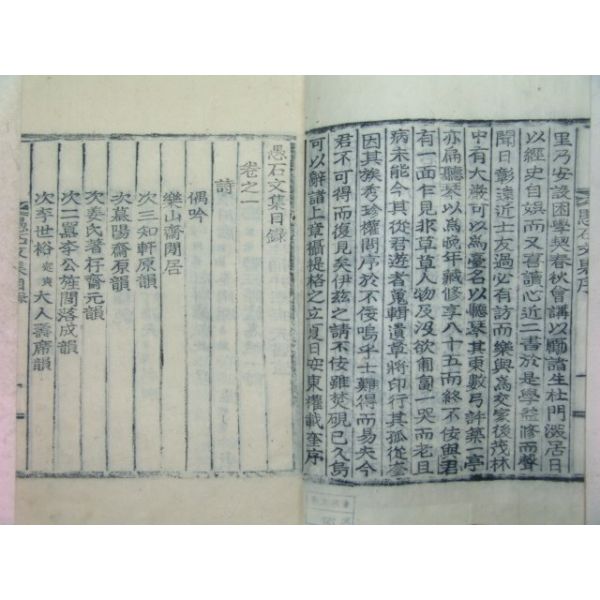 里乃安設困學契春秋會講以勵諸生杜門淡居日
以經史自娛而又喜讀心近二書於是學益修而聲
聞日彰遠近士友過必有訪而樂與爲交家後茂林
中有大巖可以爲臺名以聽琴其東數弓許築一亭
亦扁聽琴以爲晩年藏修享八十五而終不佞與君
有一面乍見非草草人物及沒欲匍匐一哭而老且
病未能今其從君遊者蒐輯遺章將印行其孤從
因其族秀珍權問序於不佞嗚乎士難得而易失今
君不可得而復見矣伊玆之請不佞雖焚硯已久烏
可以辭諸上章攝提格之立夏日安東權載奎序
愚石文集序
愚石文集目錄
卷之一
詩
偶吟
樂山齋閒居
次三知軒原韻
次慕陽齋原韻
次姜氏著存齋元韻
次二曷李公旌閭落成韻
次李世裕 大人壽席韻
愚石文集目錄